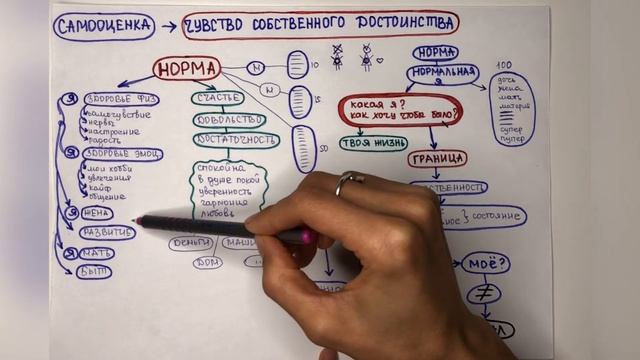 САМООЦЕНКА → ЧУВСТВО СОБСТВЕННОГО ДОСТОИНСТВА
НОРМА
Я ЗДОРОВЬЕ ФИЗ
самочувствие
нервы
настроение
радость
Я ЗДОРОВЬЕ ЭМОЦ
мои хобби
увлечения
кайф
общение
Я ЖЕНА
РАЗВИТИЕ
Я МАТЬ
БЫТ
СЧАСТЬЕ
ДОВОЛЬСТВО
ДОСТАТОЧНОСТЬ
спокойна
в душе покой
уверенность
гармония
любовь
ДЕНЬГИ
ДОМ
...
10
15
50
НОРМА
НОРМАЛЬНАЯ Я
какая я?
как хочу чтобы было?
ТВОЯ ЖИЗНЬ
ГРАНИЦА
состояние
МОЁ?
≠
100
дочь
жена
мать
супер
пупер